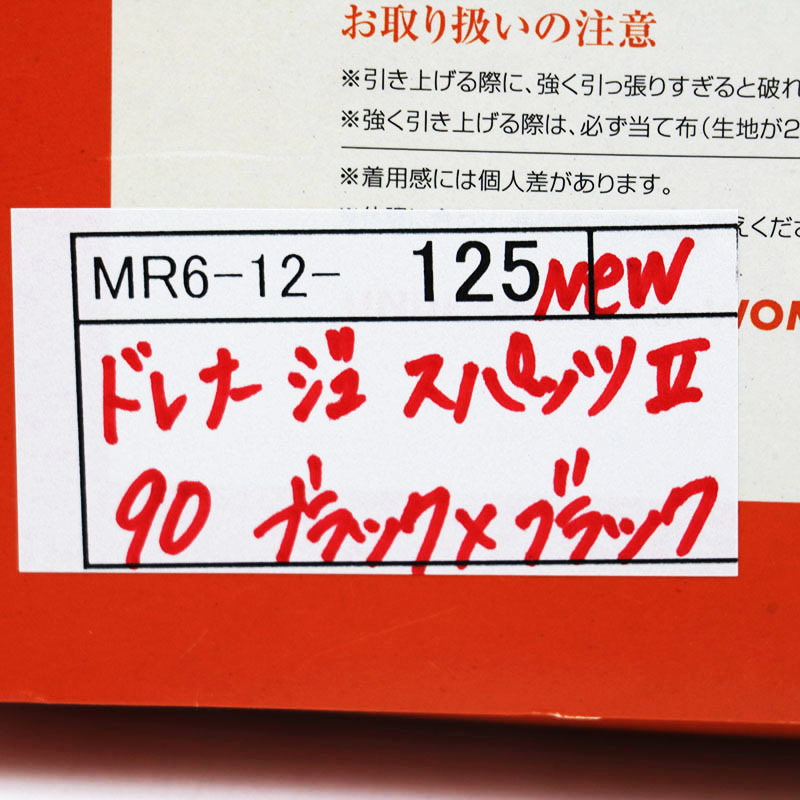 お取り扱いの注意
※引き上げる際に、強く引っ張りすぎると破れ
※強く引き上げる際は、必ず当て布(生地が2
※着用感には個人差があります。
えくださ
MR6-12- 125 NEW
WOM
ドレナージュ スパッツ II
90 ブラック×ブラック